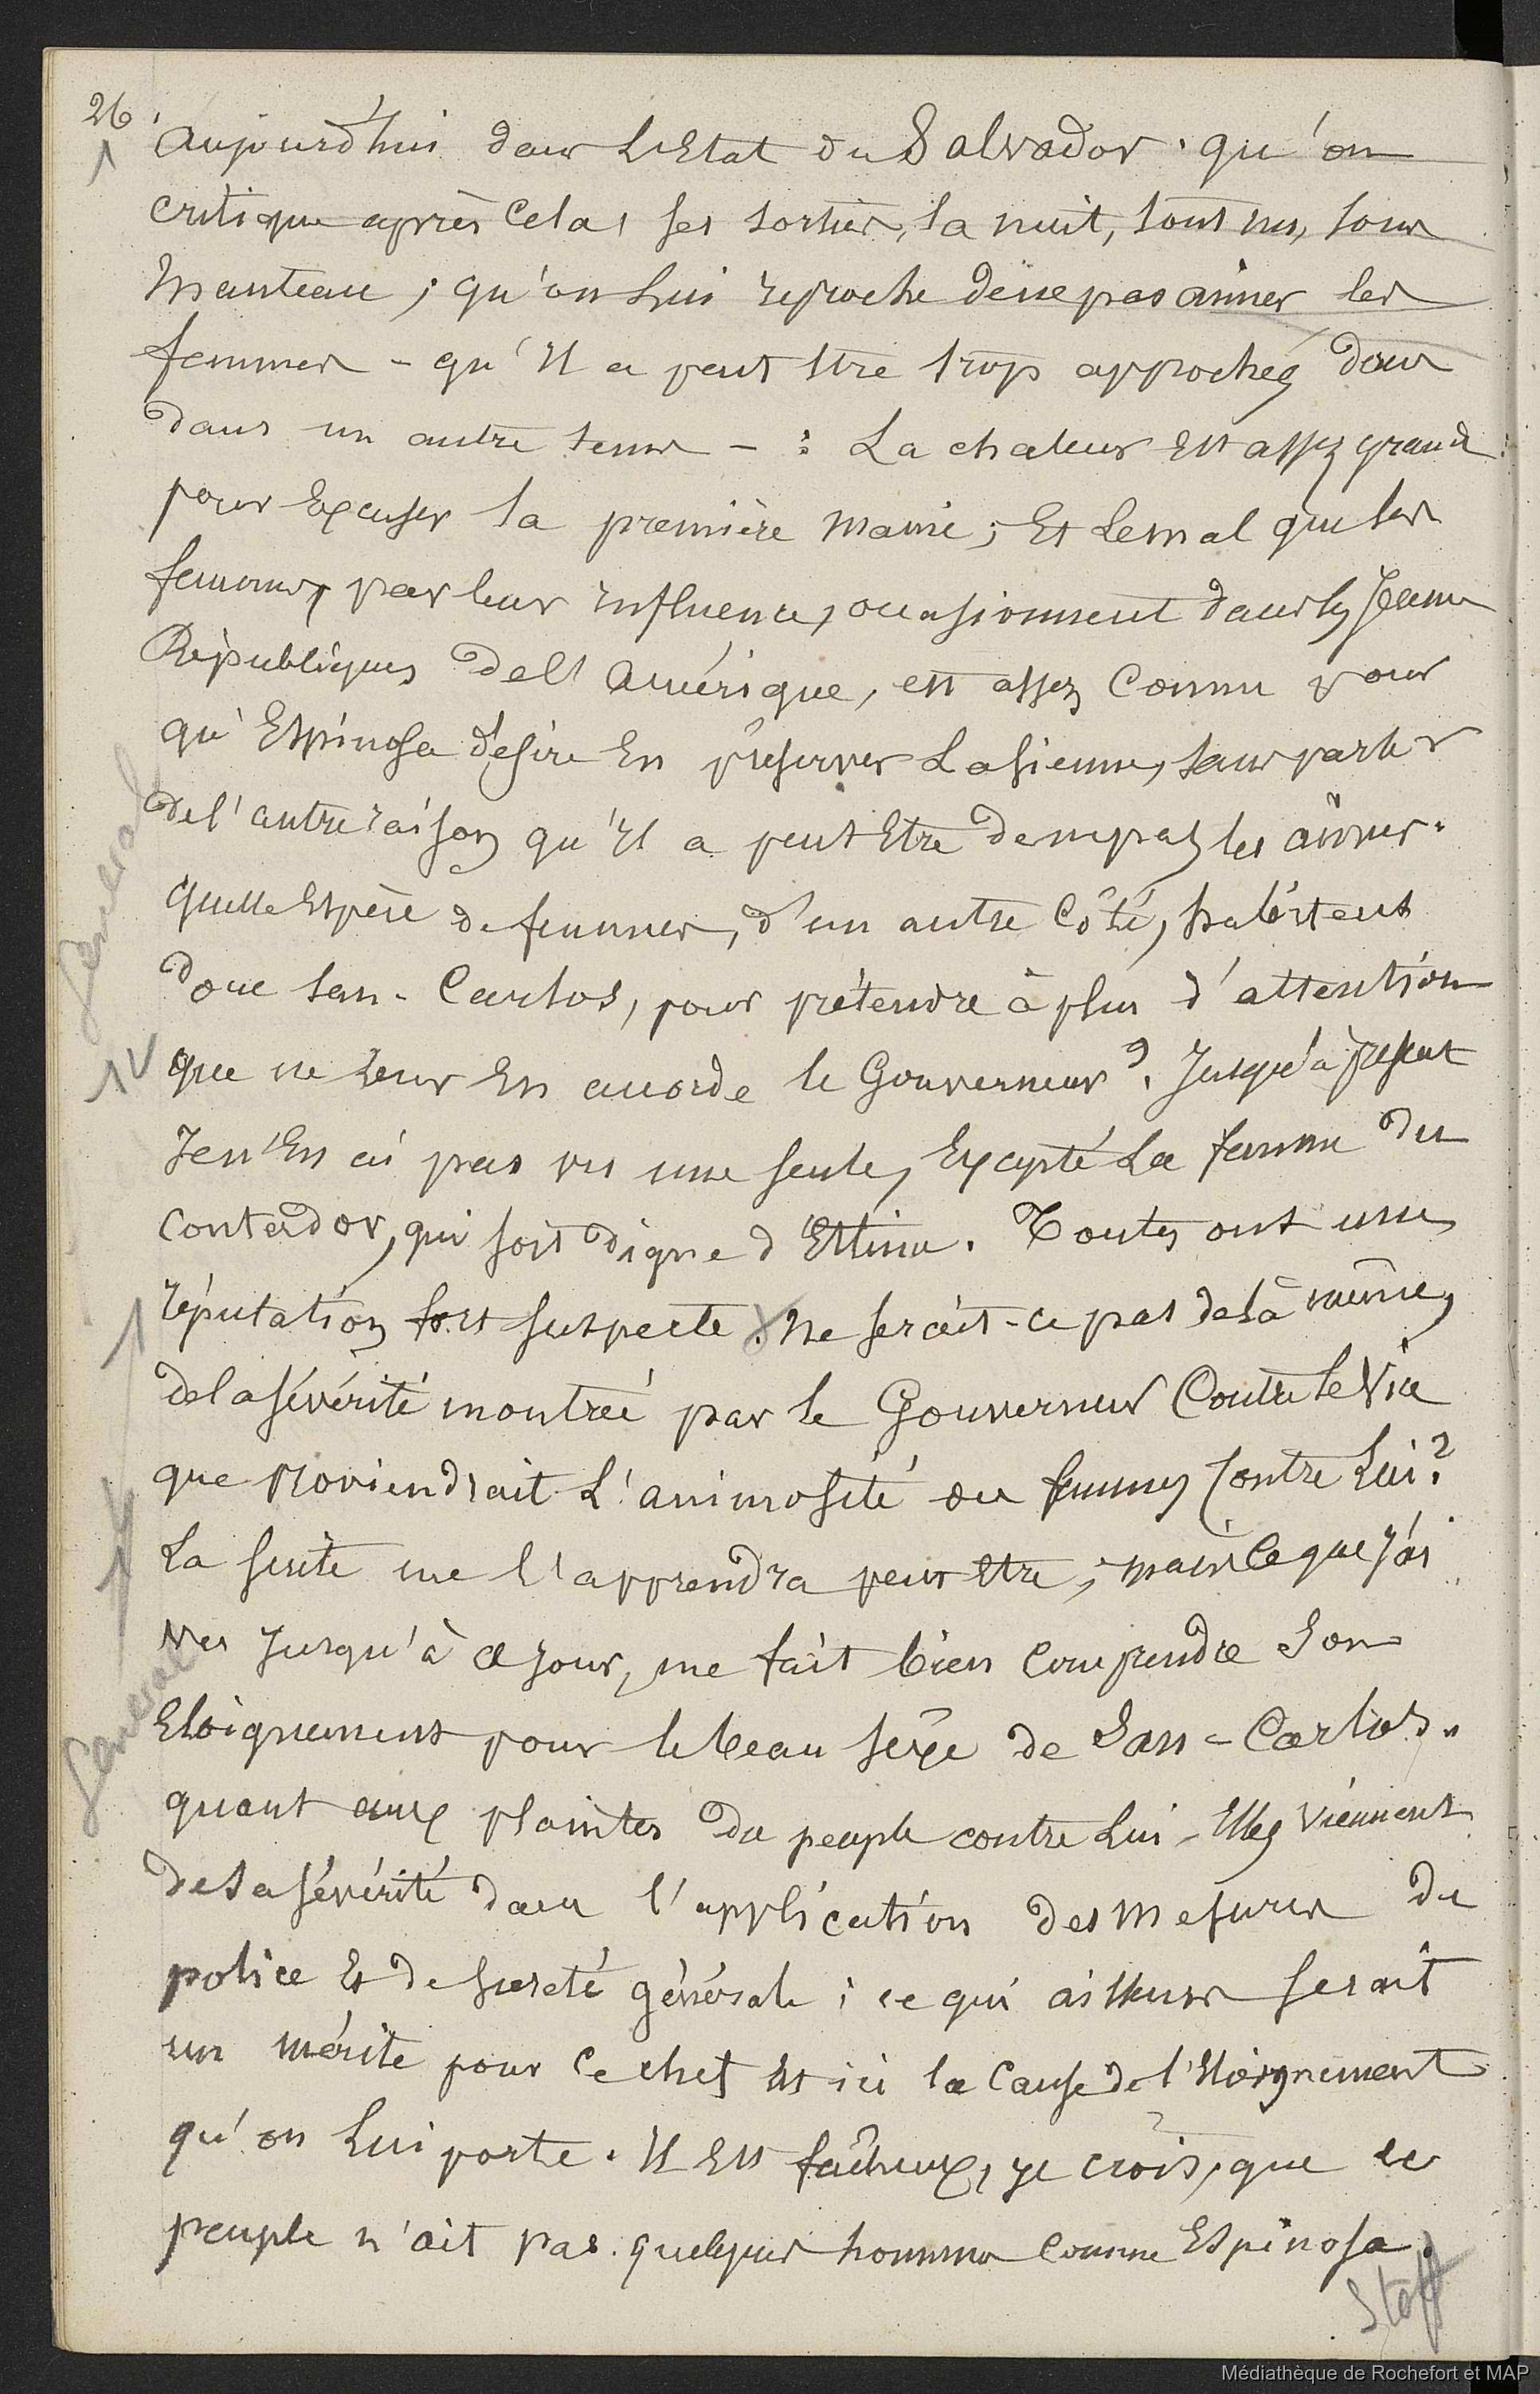 26
aujourd'hui dans L'Etat du Salvador. qu'on
critique après cela, ses sorties, la nuit, tout nu, sous
manteau ; qu'on lui reproche de ne pas aimer les
femmes - qu'il a peut être trop approchées dans
dans un autre sens - : La chaleur est assez grande
pour excuser la première manie ; Et le mal que les
femmes, par leur influence, occasionnent dans les jeunes
Républiques de l'Amérique, est assez connu pour
qu'Espinosa désire en préserver la sienne, sans parler
de l'autre raison qu'il a peut Etre de ne pas les aimer.
quelle espèce de femmes, d'un autre côté, habitent
donc San-Carlos, pour prétendre à plus d'attention
que ne leur en accorde le Gouverneur ? Jusqu'à présent
Je n'En ai pas vu une seule, Excepté La femme du
contador, qui soit digne d'Estime. Toutes ont une
réputation fort suspecte. Ne serait-ce pas de là même,
de la sévérité montrée par le Gouverneur Contre le Vice
que proviendrait L'animosité des femmes contre Lui ?
La suite me l'apprendra peut Etre ; mais ce que j'ai
vu Jusqu'à ce jour, me fait bien comprendre son
Eloignement pour le beau sexe de San-Carlos.
quant aux plaintes du peuple contre Lui - Elles viennent
de sa sévérité dans l'application des mesures de
police Et de sureté générale ; ce qui ailleurs serait
un mérite pour ce chef Est ici la cause de l'Eloignement
qu'on Lui porte. Il Est fâcheux, je crois, que ce
peuple n'ait pas quelques hommes comme Espinosa.
General
General
Stoff
Médiathèque de Rochefort et MAP